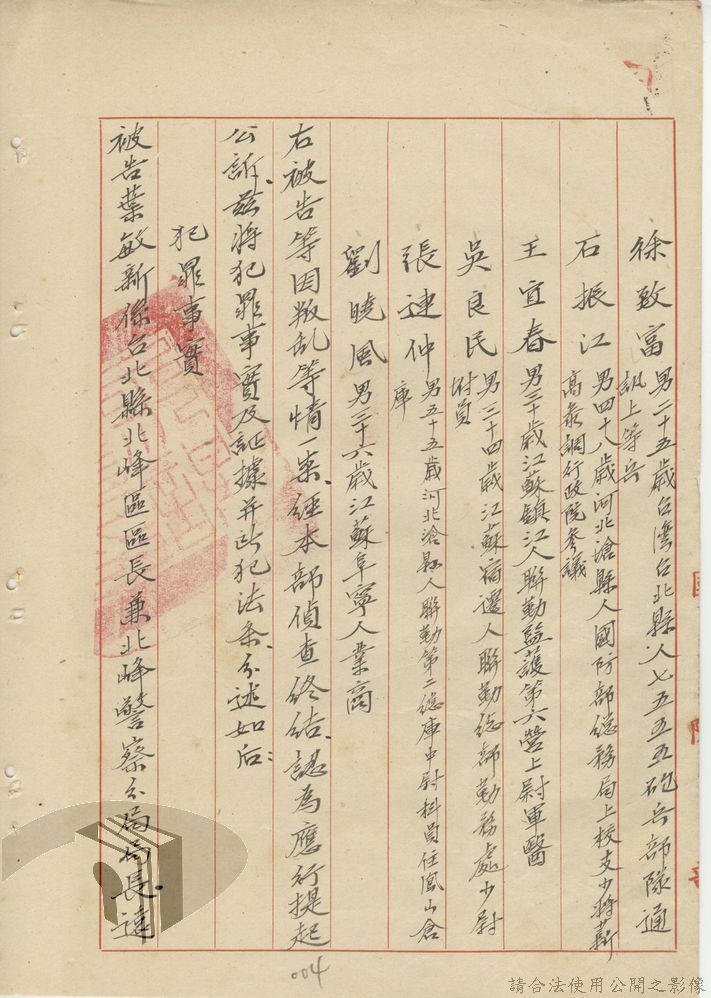 徐致富 男二十五歲台灣台北縣人七五五五砲兵部隊通
訊上等兵
石振江 男四十八歲河北滄縣人國防部總務局上校支少將薪
高參調行政院參議
王宜春 男三十歲江蘇鎮江人聯勤監護第六營上尉軍醫
吳良民 男三十四歲江蘇宿遷人聯勤總部勤務處少尉
附員
張連仲 男五十五歲河北滄縣人聯勤第二總庫中尉科員任鳳山倉
庫
劉曉風 男三十六歲江蘇阜寧人業商
右被告等因叛乱等情一案、經本部偵查終結、認為應行提起
公訴、茲將犯罪事實及証據并所犯法条、分述如后:
犯罪事實
被告葉敏新係台北縣北峰區區長兼北峰警察分局局長、遠
004
請合法使用公開之影像